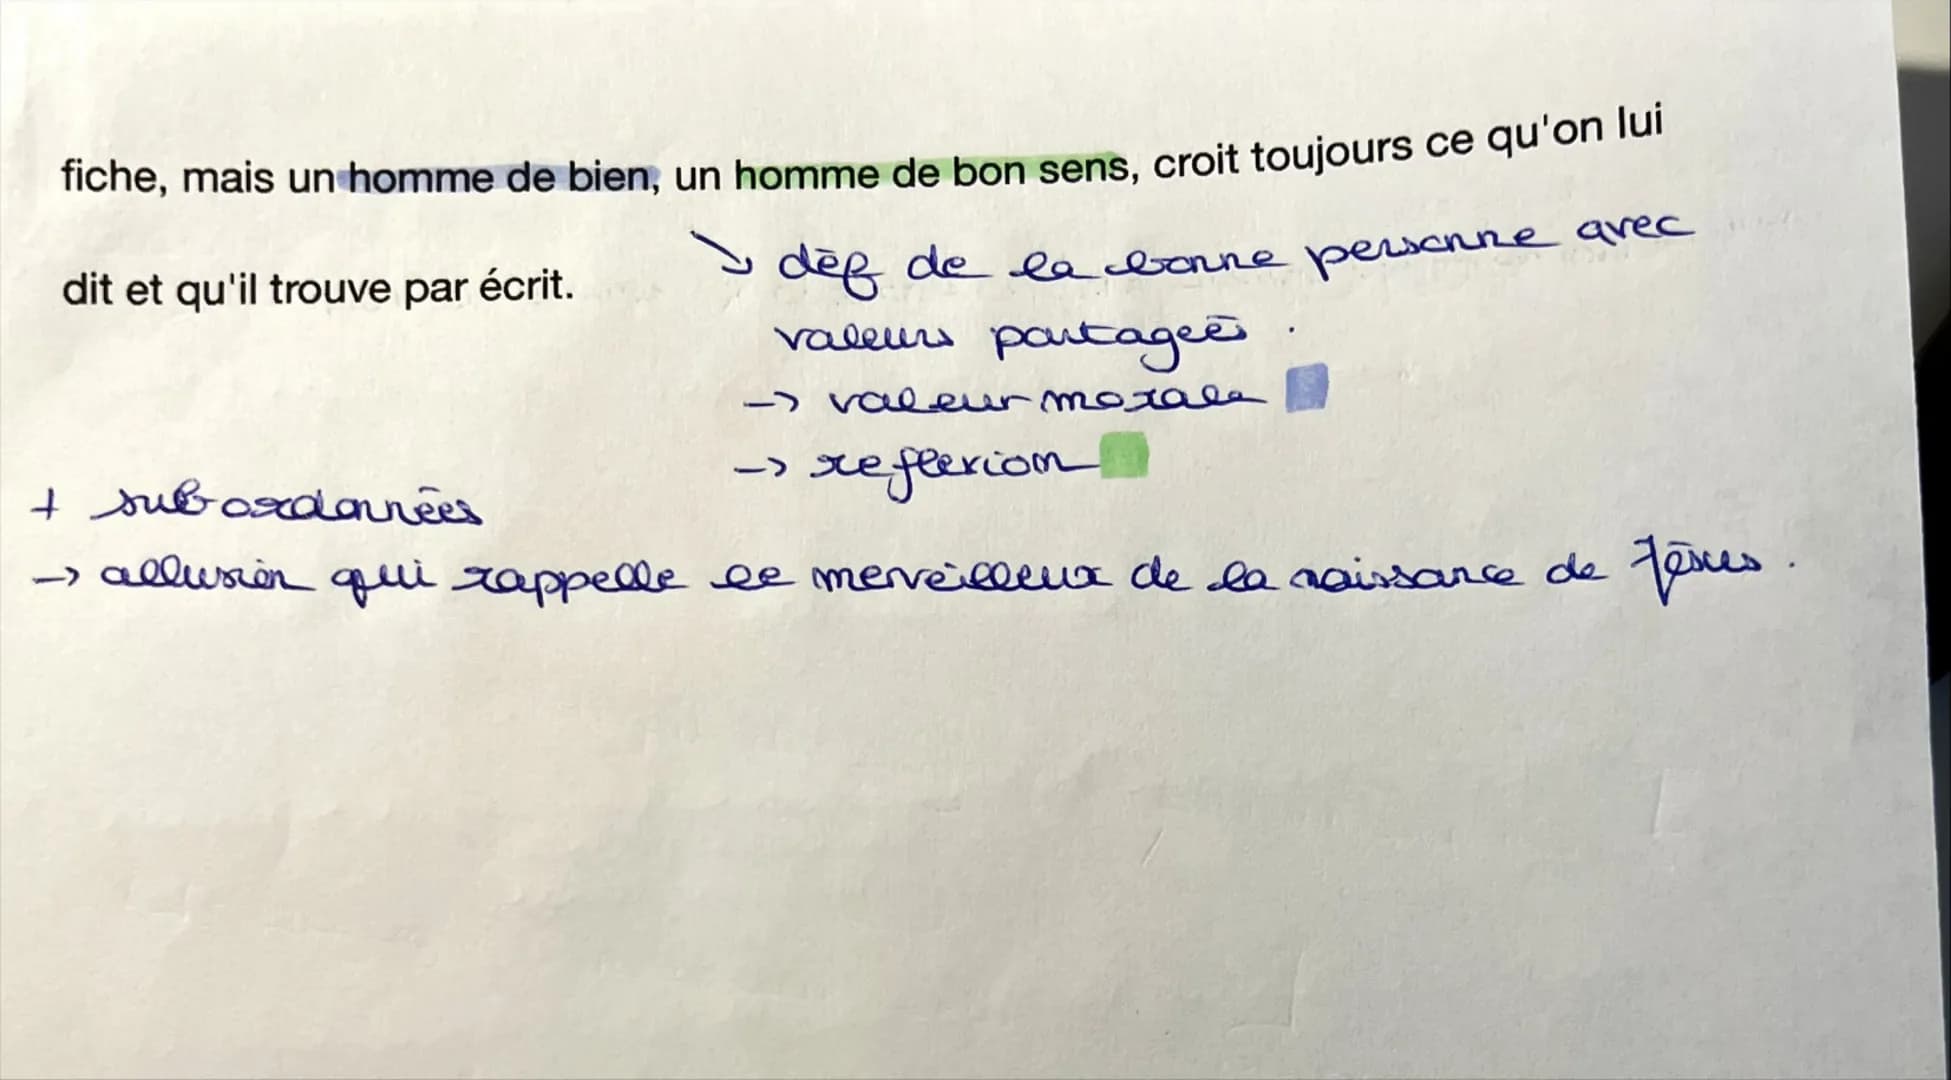 fiche, mais un homme de bien, un homme de bon sens, croit toujours ce qu'on lui
dit et qu'il trouve par écrit.
↘ déf de la bonne personne avec
valeurs partagées .
-> valeur morale
-> reflexion
+ subordonnées
-> allusion qui rappelle le merveilleux de la naissance de Jésus .